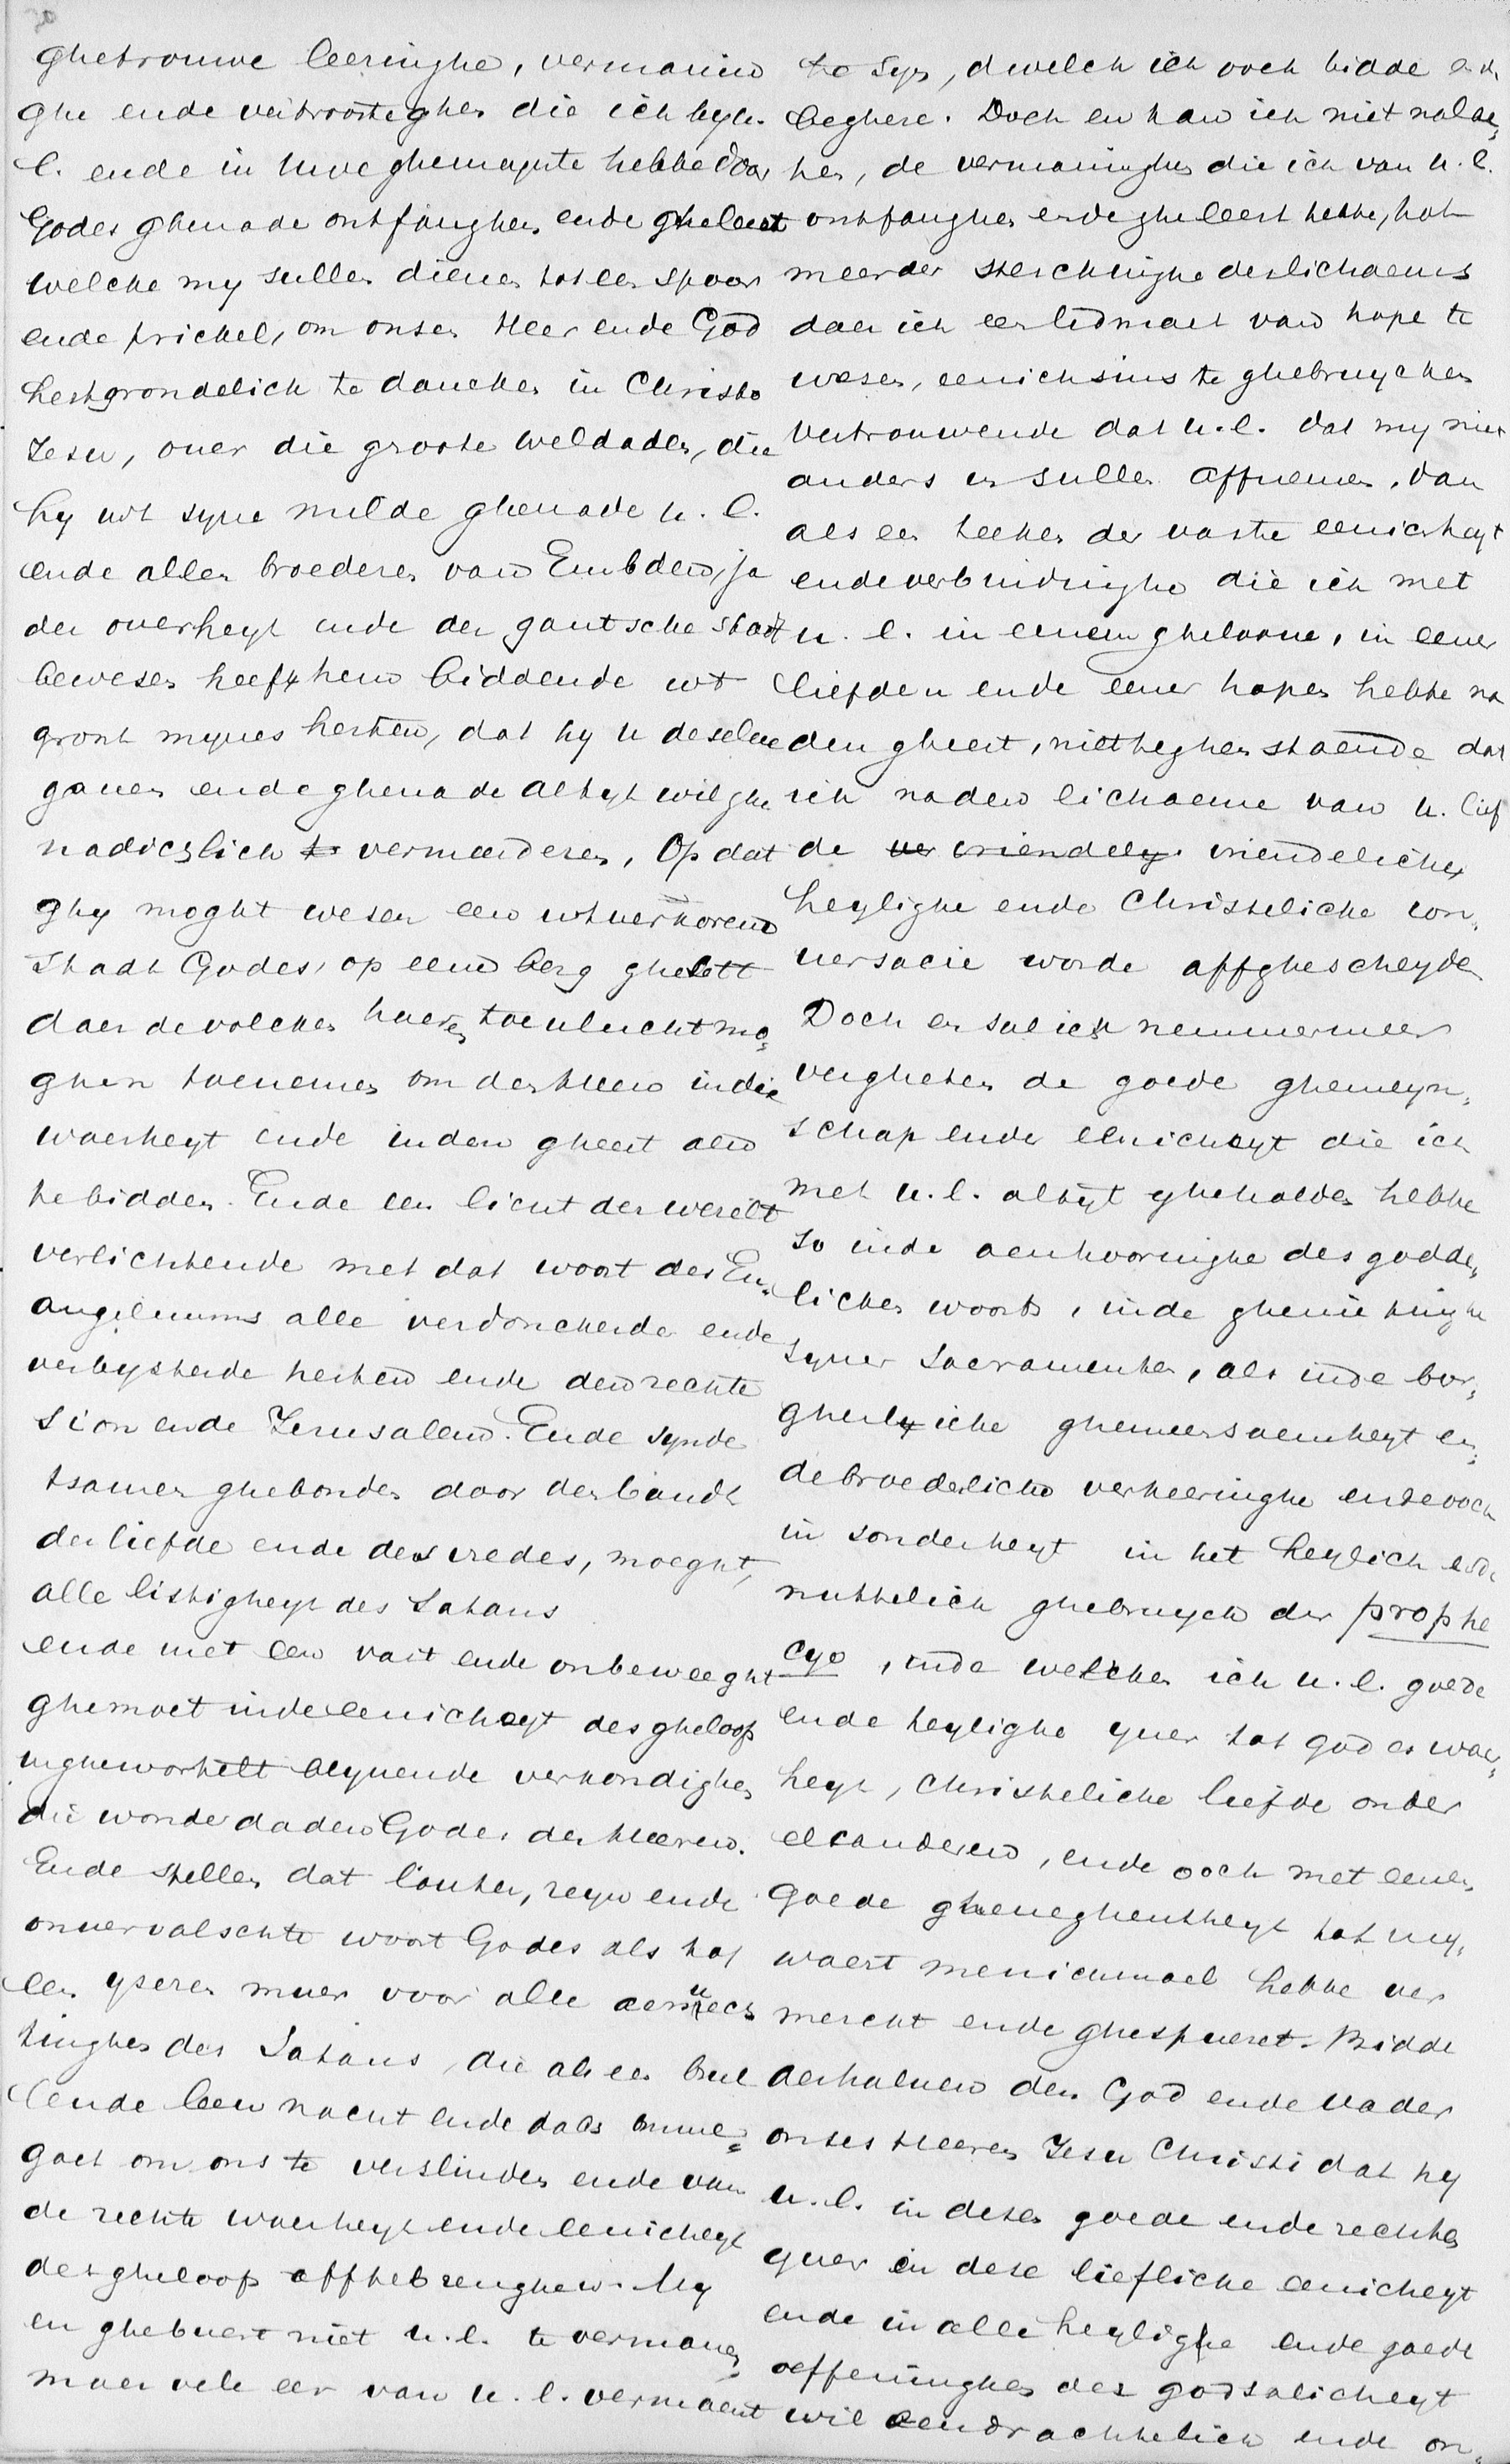 ghetrouwe leeringhe, vermanin
ghe ende vertroostinghen die ich by u.
l. ende in uwe ghemeynte hebbe door
Godes ghenade ontfanghen ende gheleert
welcke my sullen dienen tot een spoor
ende prickel, om onsen Heer ende God
hertgrondelich te dancken in Christo
Jesu, ouer die groote weldaden, die
hy wt syne milde ghenade u. l.
ende allen broederen van Embden, ja
der ouerheyt ende der gantsche stadt
bewesen heeft hem biddende wt
gront mynes herten, dat hy u de selue
gauen ende ghenade altyt wil ghe
nadichlich te vermeerderen, Op dat
ghy moght wesen een wtuerkoren
Stadt Godes, op eenen berg ghesett
daer de volcken haeren toeulucht mo=
ghen toenemen om den Heere in die
waerheyt ende inden gheest aen
te bidden. Ende een licht der werelt
verlichtende met dat woort des Eu=
angeliums alle verdonckerde ende
verbysterde herten ende den rechte
Sion ende Jerusalem. Ende synde
tsamen ghebonden door den bandt
der liefde ende des vredes, moeght,
alle listigheyt des Satans
ende met een vast ende onbeweeght
ghemoet inde eenicheyt des gheloofs
inghewortelt blyuende verkondighen
die wonderdaden Godes des Heeren.
Ende stellen dat louter, reyn ende
onuervalschte woort Godes als tot
een yseren muer voor alle aenuech
tinghen des Satans, die als een brul
lende leeu nacht ende dach omme=
gaet om ons te verslinden ende van
de rechte waerheyt ende eenicheyt
des gheloofs aff te brenghen. My
en ghebuert niet u. l. te vermanen
maer vele eer van u. l. vermaent
te syn, dwelch ich ooch bidde ende
beghere. Doch en kan ich niet nalae=
ten, de vermaninghen die ich van u. l.
ontfanghen ende gheleert hebbe, tot
meerder sterckinghe des lichaems
daer ich een lidmaet van hope te
wesen, eenichsins te ghebruycken
vertrouwende dat u. l. dat my niet
anders en sullen affnemen, dan
als een teeken der vaste eenicheyt
ende verbindinghe die ich met
u. l. in eenem gheloove, in eener
liefden ende eener hopen hebbe na
den gheest, niet teghenstaende dat
ich naden lichaeme van u. lief
de ver vriendely vriendelicher
heylighe ende Christeliche con=
uersacie worde affghescheyden
Doch en sal ich nemmermeer
vergheten de goede ghemeyn=
schap ende eenicheyt die ich
met u. l. altyt ghehalden hebbe
so inde aenhooringhe des godde=
lichen woorts, inde ghenietinghe
syner Sacramenten, als inde bor=
gherliche ghemeensaemheyt en=
de broederliche verkeeringhe ende ooch
in sonderheyt in het heylich ende
nuttelich ghebruych der prophe
cye, inde welcken ich u. l. goede
ende heylighe yuer tot godes waer=
heyt, Christeliche liefde onder
elcanderen, ende ooch met eener
goede gheneghentheyt tot my=
waert menichmael hebbe ver
merckt ende ghespueret. Bidde
derhaluen den God ende Vader
onses Heeren Jesu Christi dat hy
u. l. in desen goede ende rechten
yuer in dese liefliche eenicheyt
ende in alle heylighe ende goede
oeffeninghen der godsalicheyt
wil eendrachtelich ende on=